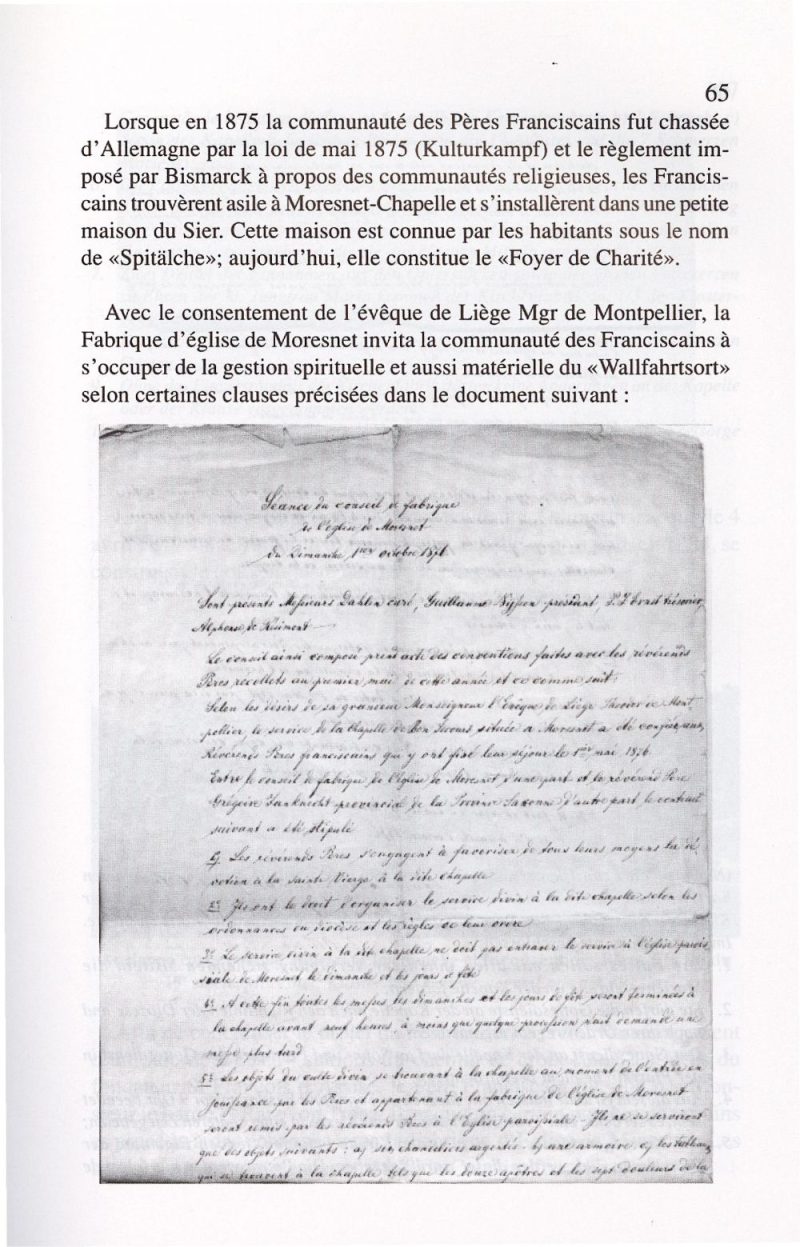 65
Lorsque en 1875 la communauté des Pères Franciscains fut chassée
d'Allemagne par la loi de mai 1875 (Kulturkampf) et le règlement im-
posé par Bismarck à propos des communautés religieuses, les Francis-
cains trouvèrent asile à Moresnet-Chapelle et s'installèrent dans une petite
maison du Sier. Cette maison est connue par les habitants sous le nom
de «Spitälche»; aujourd'hui, elle constitue le «Foyer de Charité».
Avec le consentement de l'évêque de Liège Mgr de Montpellier, la
Fabrique d'église de Moresnet invita la communauté des Franciscains à
s'occuper de la gestion spirituelle et aussi matérielle du «Wallfahrtsort»
selon certaines clauses précisées dans le document suivant :
Séance du conseil de fabrique
de l'église de Moresnet
du Dimanche 1er octobre 1876
Sont présents Messieurs Dahlen curé, Guillaume président, trésorier,
Alphonse de Résimont
Le conseil ainsi composé prend acte des conventions faites avec les révérends
Pères recollets au premier mai de cette année et ce comme suit:
Selon les désirs de sa grandeur Monseigneur l'Evêque de Liége de Mont
pellier, le service de la Chapelle de Bon Secours située a Moresnet a été confié aux
Révérends Pères franciscains qui y ont fixé leur séjour le 1er mai 1876
Entre le conseil de fabrique de l'église de Moresnet d'une part et le révérend Père
Grégoire Janknecht provincial de la Province Saxonne d'autre part, le contract
suivant a été stipulé
Les révérends Pères s'engagent à favoriser de tous leurs moyens la dé
votion à la Sainte Vierge à la dite chapelle
2° Ils ont le droit d'organiser le service divin à la dite chapelle selon les
ordonnances du diocèse et les règles de leur ordre
3° Le service divin à la dite chapelle ne doit pas entraver le service à l'église parois
siale de Moresnet le dimanche et les jours de fête
4° A cette fin toutes les messes les dimanches et les jours de fête seront terminées à
la chapelle avant neuf heures, à moins que quelque procession n'ait demandé une
messe plus tard
5° Les objets du culte divin se trouvant à la chapelle au moment de l'entrée en
jouissance par les Pères et appartenant à la fabrique de l'église de Moresnet
seront remis par les révérends Pères à l'Eglise paroissiale. Ils ne se serviront
que des objets suivants: a) six chandeliers argentés b) une armoire c) les
qui se trouvent à la chapelle tels que les douze apôtres et les sept douleurs de la